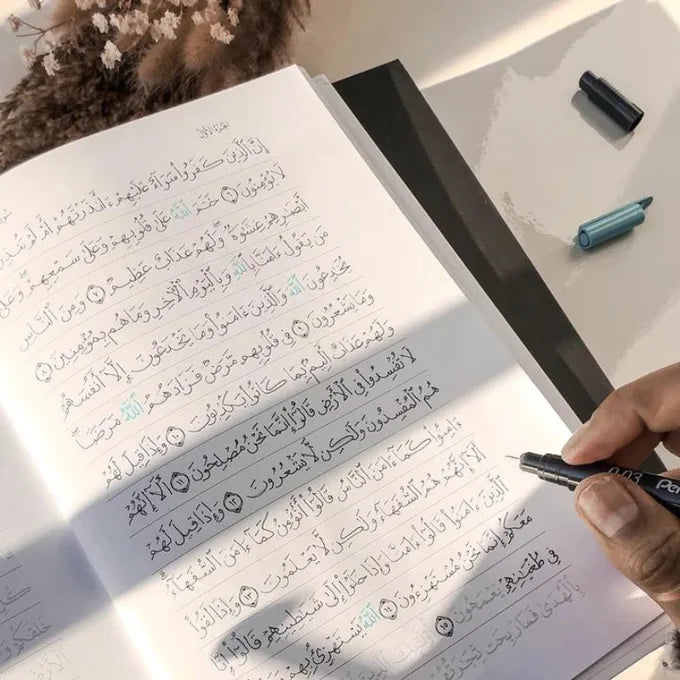 الجزء الأول
إِنَّ ٱلَّذِينَ كَفَرُوا۟ سَوَآءٌ عَلَيْهِمْ ءَأَنذَرْتَهُمْ أَمْ لَمْ
لَا يُؤْمِنُونَ ٦ خَتَمَ ٱللَّهُ عَلَىٰ قُلُوبِهِمْ وَعَلَىٰ سَمْعِهِمْ وَعَلَىٰٓ
أَبْصَٰرِهِمْ غِشَٰوَةٌ وَلَهُمْ عَذَابٌ عَظِيمٌ ٧ وَمِنَ ٱلنَّاسِ
مَن يَقُولُ ءَامَنَّا بِٱللَّهِ وَبِٱلْيَوْمِ ٱلْءَاخِرِ وَمَا هُم بِمُؤْمِنِينَ ٨
يُخَٰدِعُونَ ٱللَّهَ وَٱلَّذِينَ ءَامَنُوا۟ وَمَا يَخْدَعُونَ إِلَّآ أَنفُسَهُمْ
وَمَا يَشْعُرُونَ ٩ فِى قُلُوبِهِم مَّرَضٌ فَزَادَهُمُ ٱللَّهُ مَرَضًا
وَلَهُمْ عَذَابٌ أَلِيمٌۢ بِمَا كَانُوا۟ يَكْذِبُونَ ١٠ وَإِذَا قِيلَ لَهُمْ
لَا تُفْسِدُوا۟ فِى ٱلْأَرْضِ قَالُوٓا۟ إِنَّمَا نَحْنُ مُصْلِحُونَ ١١ أَلَآ إِنَّهُمْ
هُمُ ٱلْمُفْسِدُونَ وَلَٰكِن لَّا يَشْعُرُونَ ١٢ وَإِذَا قِيلَ لَهُمْ
ءَامِنُوا۟ كَمَآ ءَامَنَ ٱلنَّاسُ قَالُوٓا۟ أَنُؤْمِنُ كَمَآ ءَامَنَ ٱلسُّفَهَآءُ
أَلَآ إِنَّهُمْ هُمُ ٱلسُّفَهَآءُ وَلَٰكِن لَّا يَعْلَمُونَ ١٣ وَإِذَا لَقُوا۟
ٱلَّذِينَ ءَامَنُوا۟ قَالُوٓا۟ ءَامَنَّا وَإِذَا خَلَوْا۟ إِلَىٰ شَيَٰطِينِهِمْ قَالُوٓا۟ إِنَّا
مَعَكُمْ إِنَّمَا نَحْنُ مُسْتَهْزِءُونَ ١٤ ٱللَّهُ يَسْتَهْزِئُ بِهِمْ
فِى طُغْيَٰنِهِمْ يَعْمَهُونَ ١٥ أُو۟لَٰٓئِكَ ٱلَّذِينَ
بِٱلْهُدَىٰ فَمَا رَبِحَت تِّجَٰرَتُهُمْ
خَلَقَكُمْ
ٱلْأَرْضَ
0.03